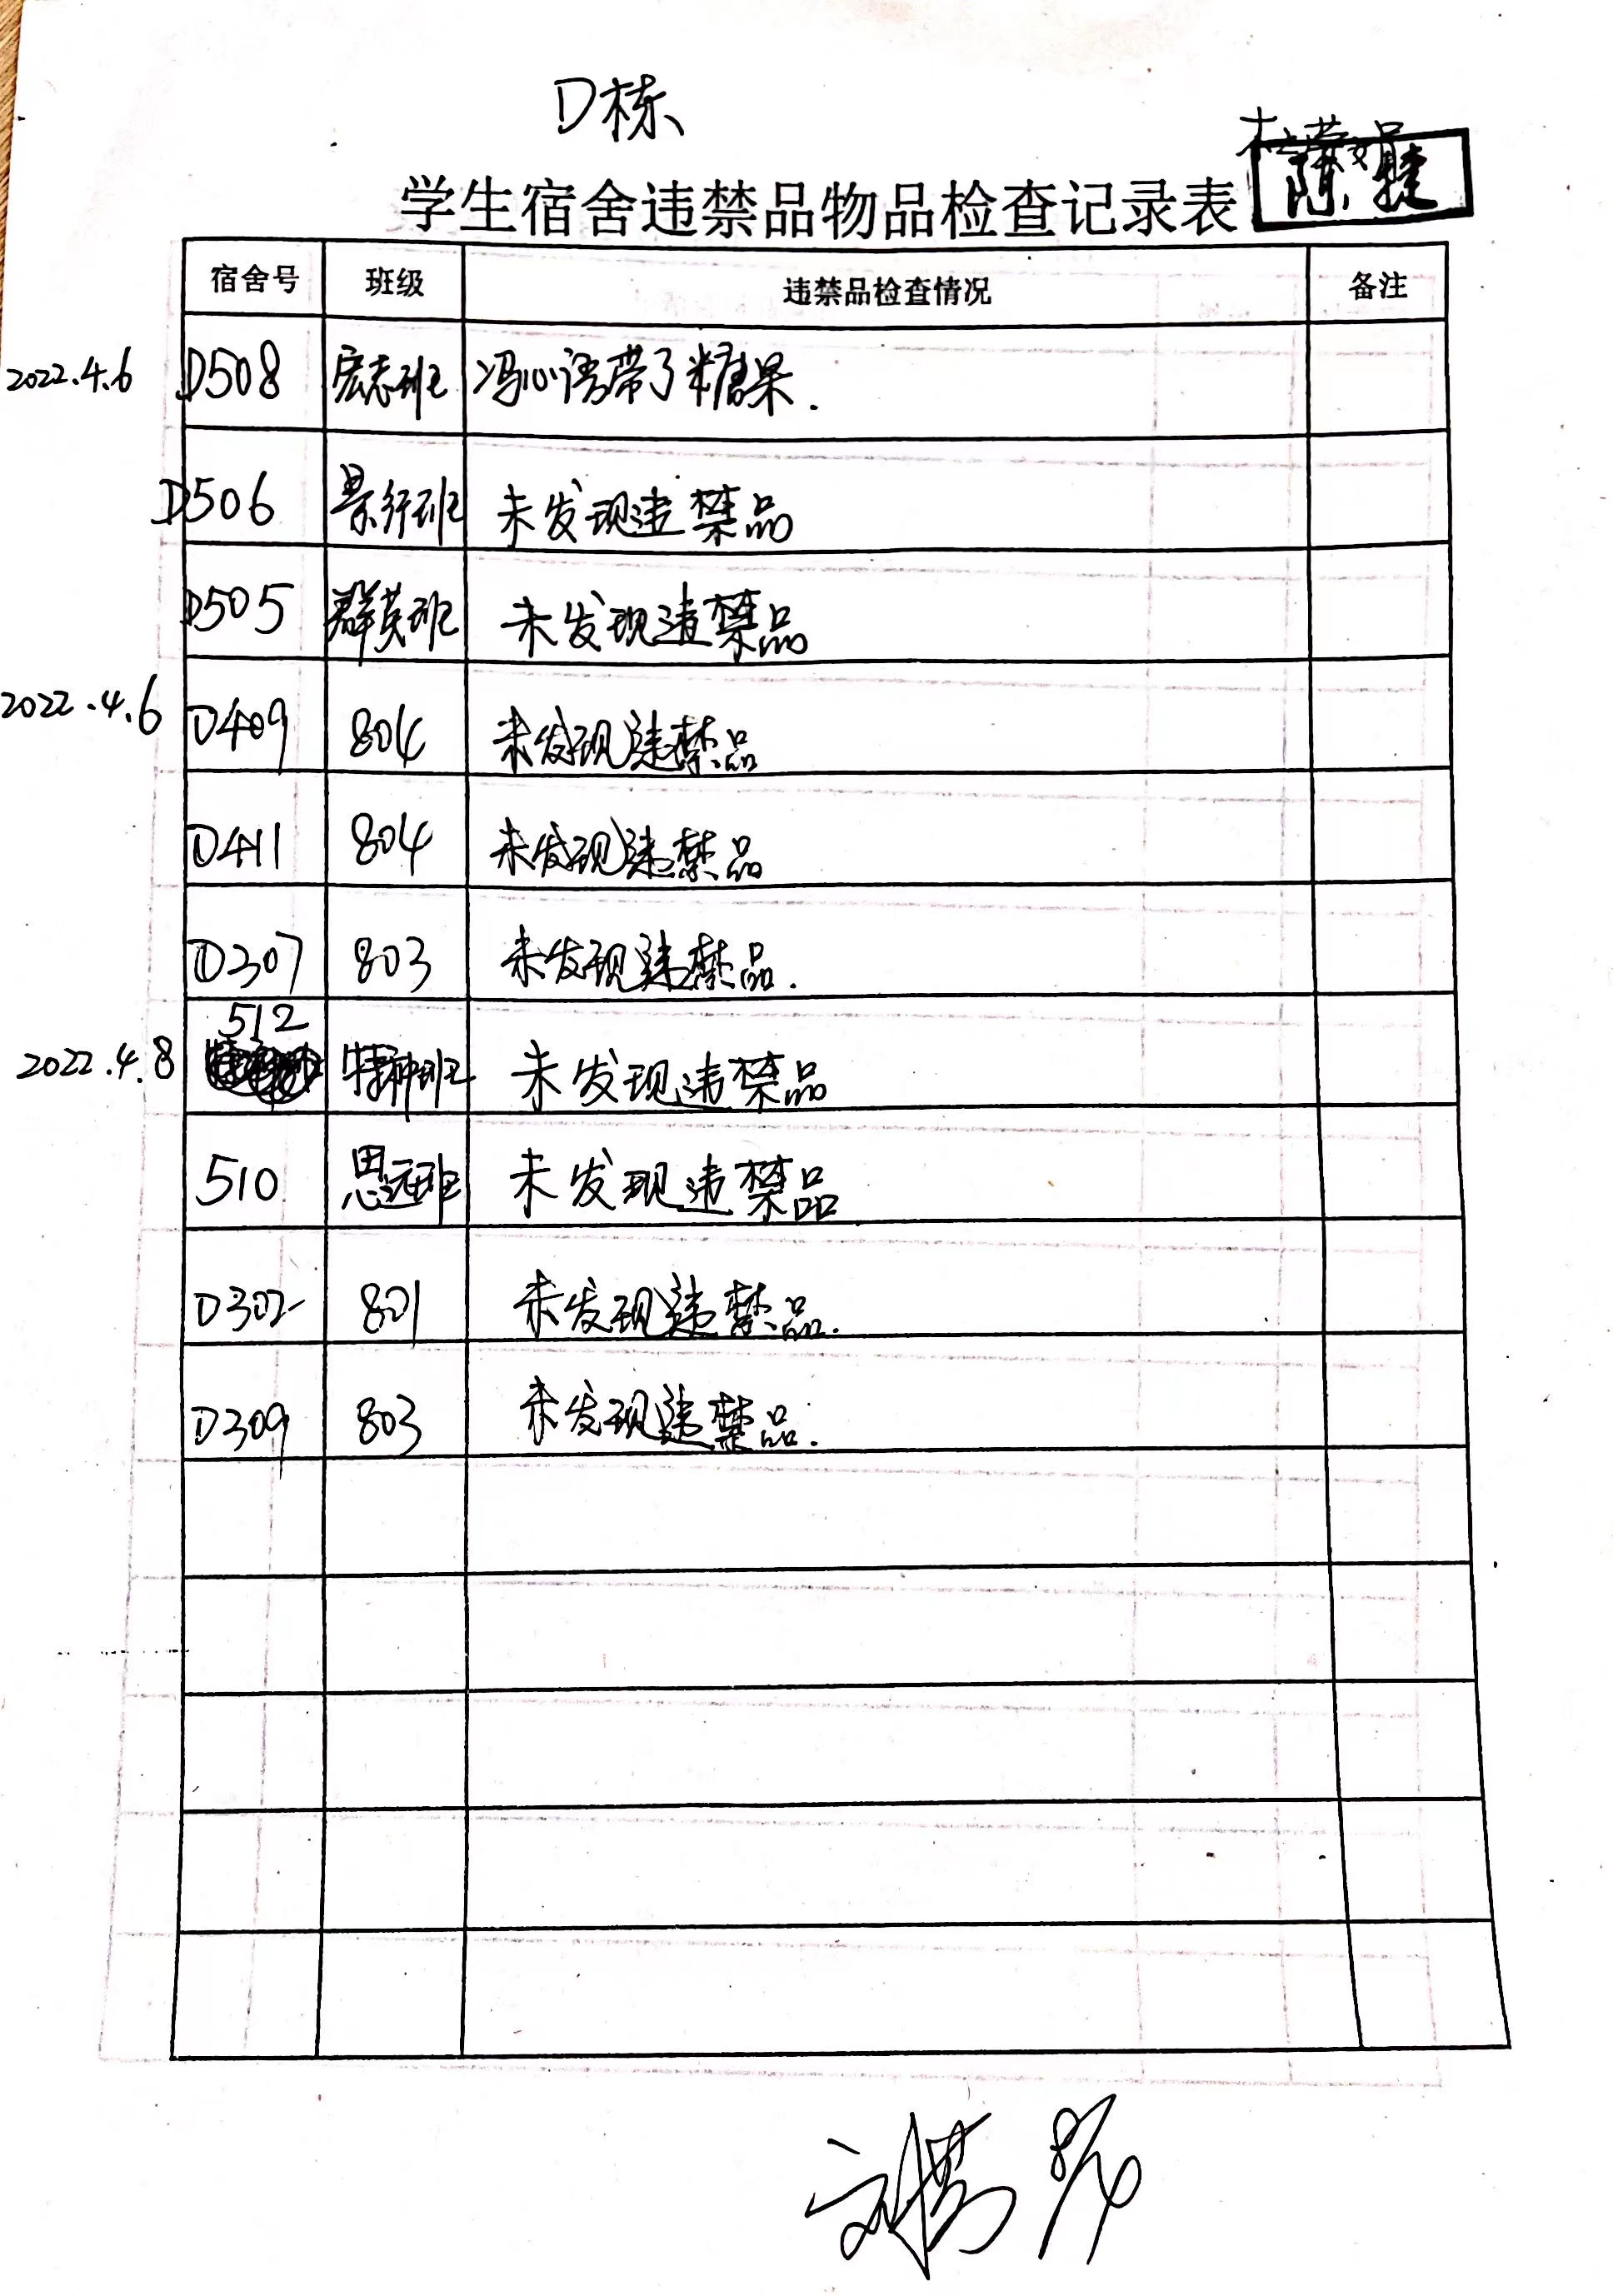 D栋
杜荣娟
陈捷
学生宿舍违禁品物品检查记录表
宿舍号 班级 违禁品检查情况 备注
2022.4.6 D508 宏志班 冯心语带了糖果.
D506 景行班 未发现违禁品
D505 群英班 未发现违禁品
2022.4.6 D409 804 未发现违禁品
D411 804 未发现违禁品
D307 803 未发现违禁品.
512
2022.4.8 特种班 未发现违禁品
510 思远班 未发现违禁品
D302 801 未发现违禁品.
D309 803 未发现违禁品.
8/4